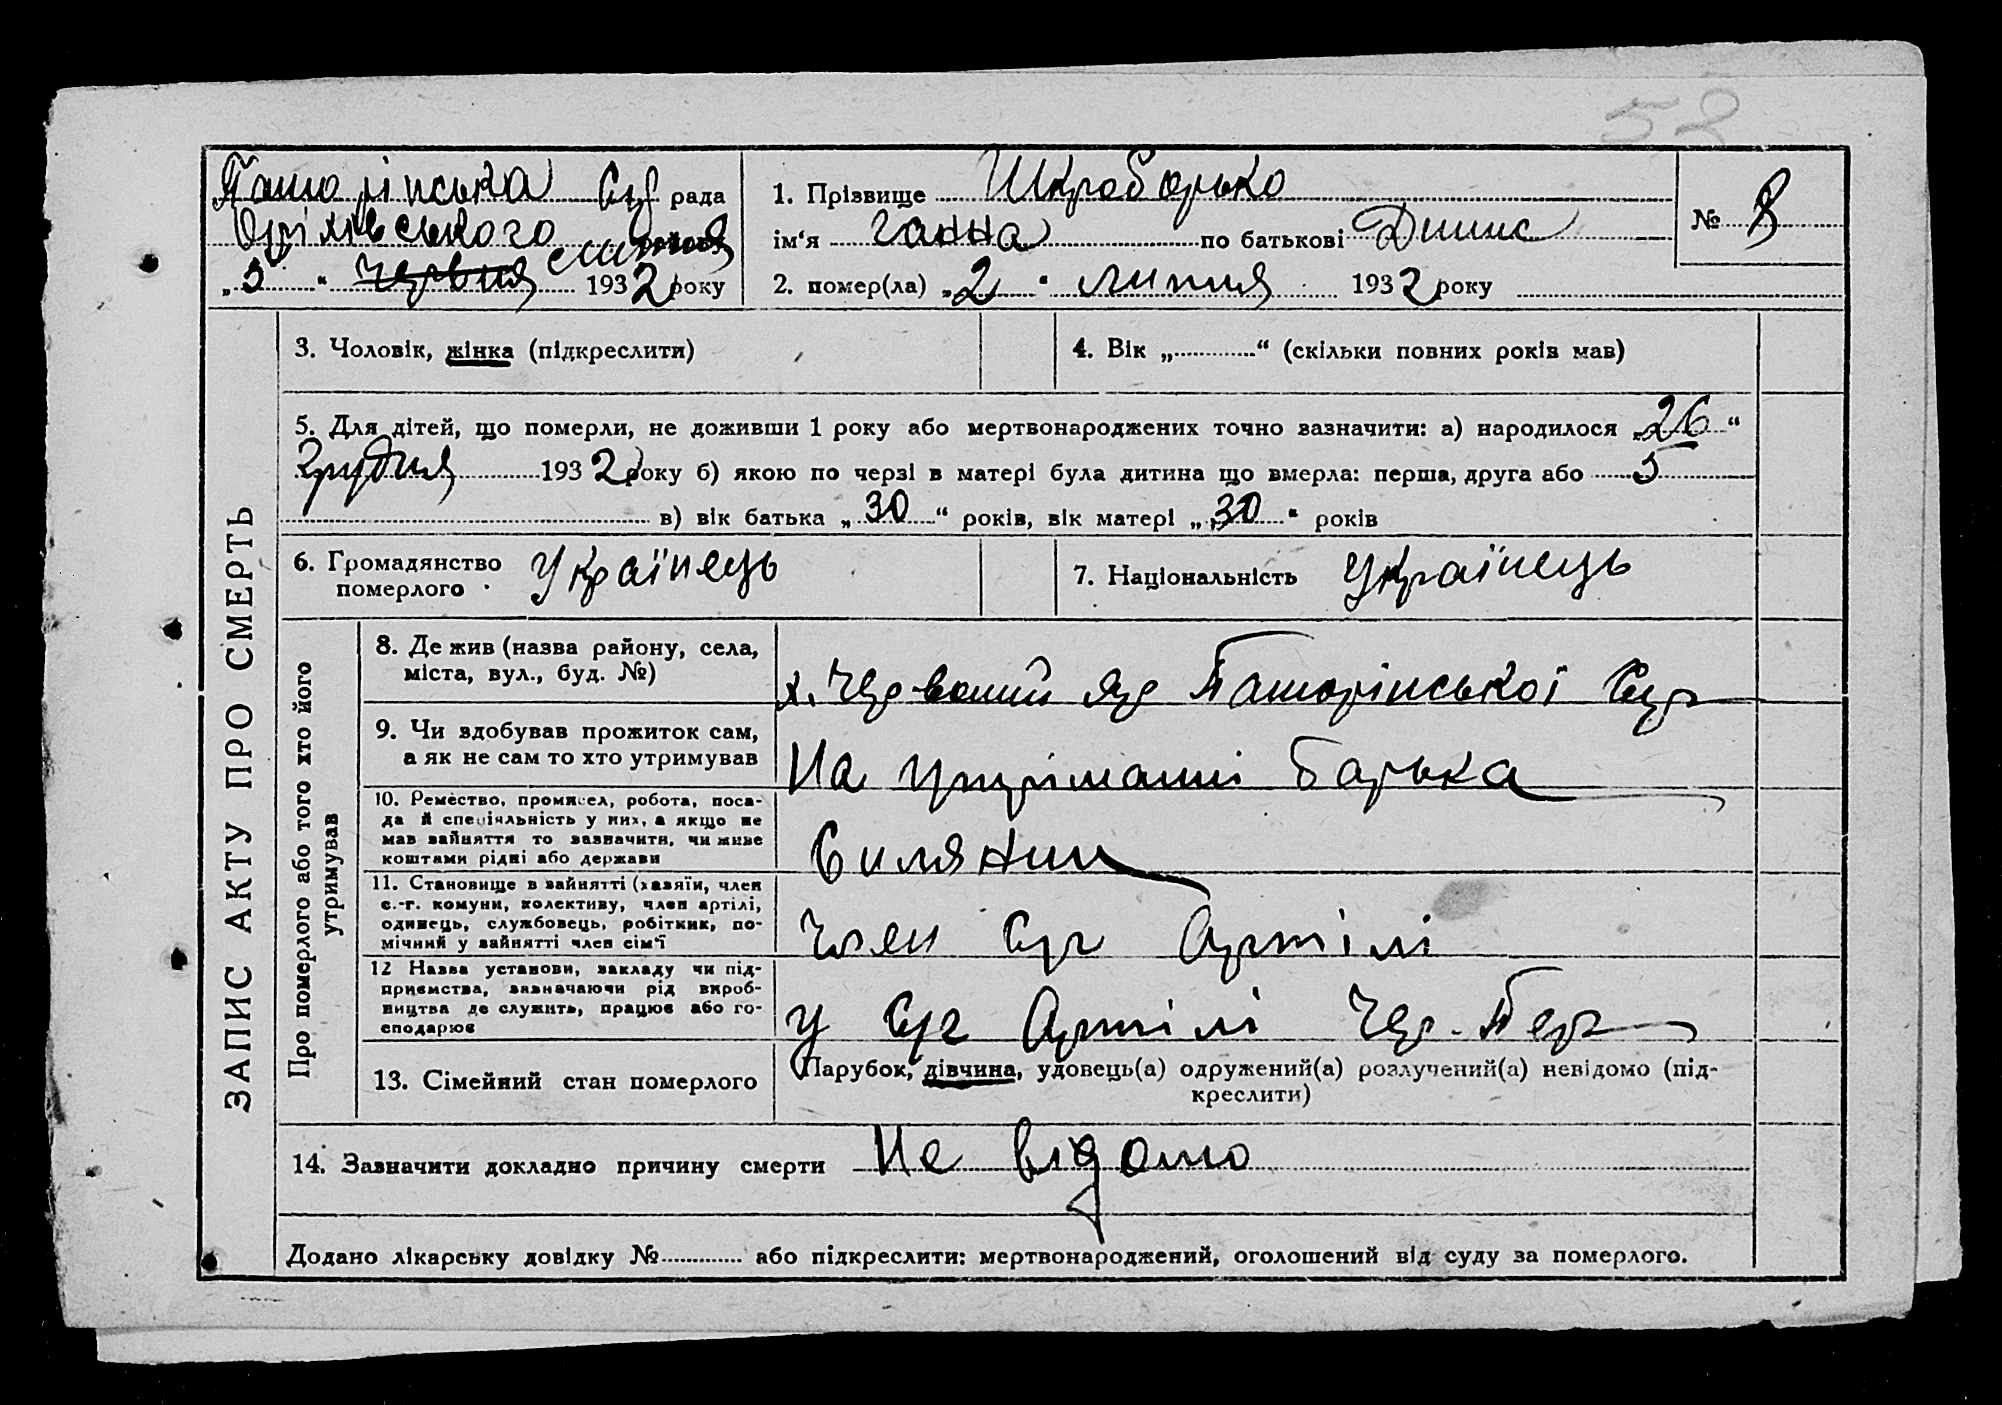 52
рада
Оріхівського липня
„ 5 “ червня 1932 року
1. Прізвище
№ 8
ім‘я Ганна по батькові Динис
2. помер(ла) „ 2 “ липня 1932 року
ЗАПИС АКТУ ПРО СМЕРТЬ
3. Чоловік, жінка (підкреслити)
4. Вік „ “ (скільки повних років мав)
5. Для дітей, що померли, не доживши 1 року або мертвонароджених точно зазначити: а) народилося „ 26 “
Грудня 1932 року б) якою по черзі в матері була дитина що вмерла: перша, друга або 5
в) вік батька „ 30 “ років, вік матері „ 30 “ років
6. Громадянство
померлого Українець
7. Національність Українець
Про померлого або того хто його
утримував
8. Де жив (назва району, села,
міста, вул., буд. №)
х. Червоний Яр
9. Чи здобував прожиток сам,
а як не сам то хто утримував
На утріманні батька
10. Ремество, промисел, робота, поса-
да й спеціяльність у них, а якщо не
мав зайняття то зазначити, чи живе
коштами рідні або держави
Силянин
11. Становище в зайнятті (хазяїн, член
с.-г. комуни, колективу, член артілі,
одинець, службовець, робітник, по-
мічний у зайнятті член сім‘ї
Член Сг Артілі
12 Назва установи, закладу чи під-
приємства, зазначаючи рід вироб-
ництва де служить, працює або го-
сподарює
у Сг Артілі Чер.
13. Сімейний стан померлого
Парубок, дівчина, удовець(а) одружений(а) розлучений(а) невідомо (під-
креслити)
14. Зазначити докладно причину смерти Не відомо
Додано лікарську довідку № або підкреслити: мертвонароджений, оголошений від суду за померлого.